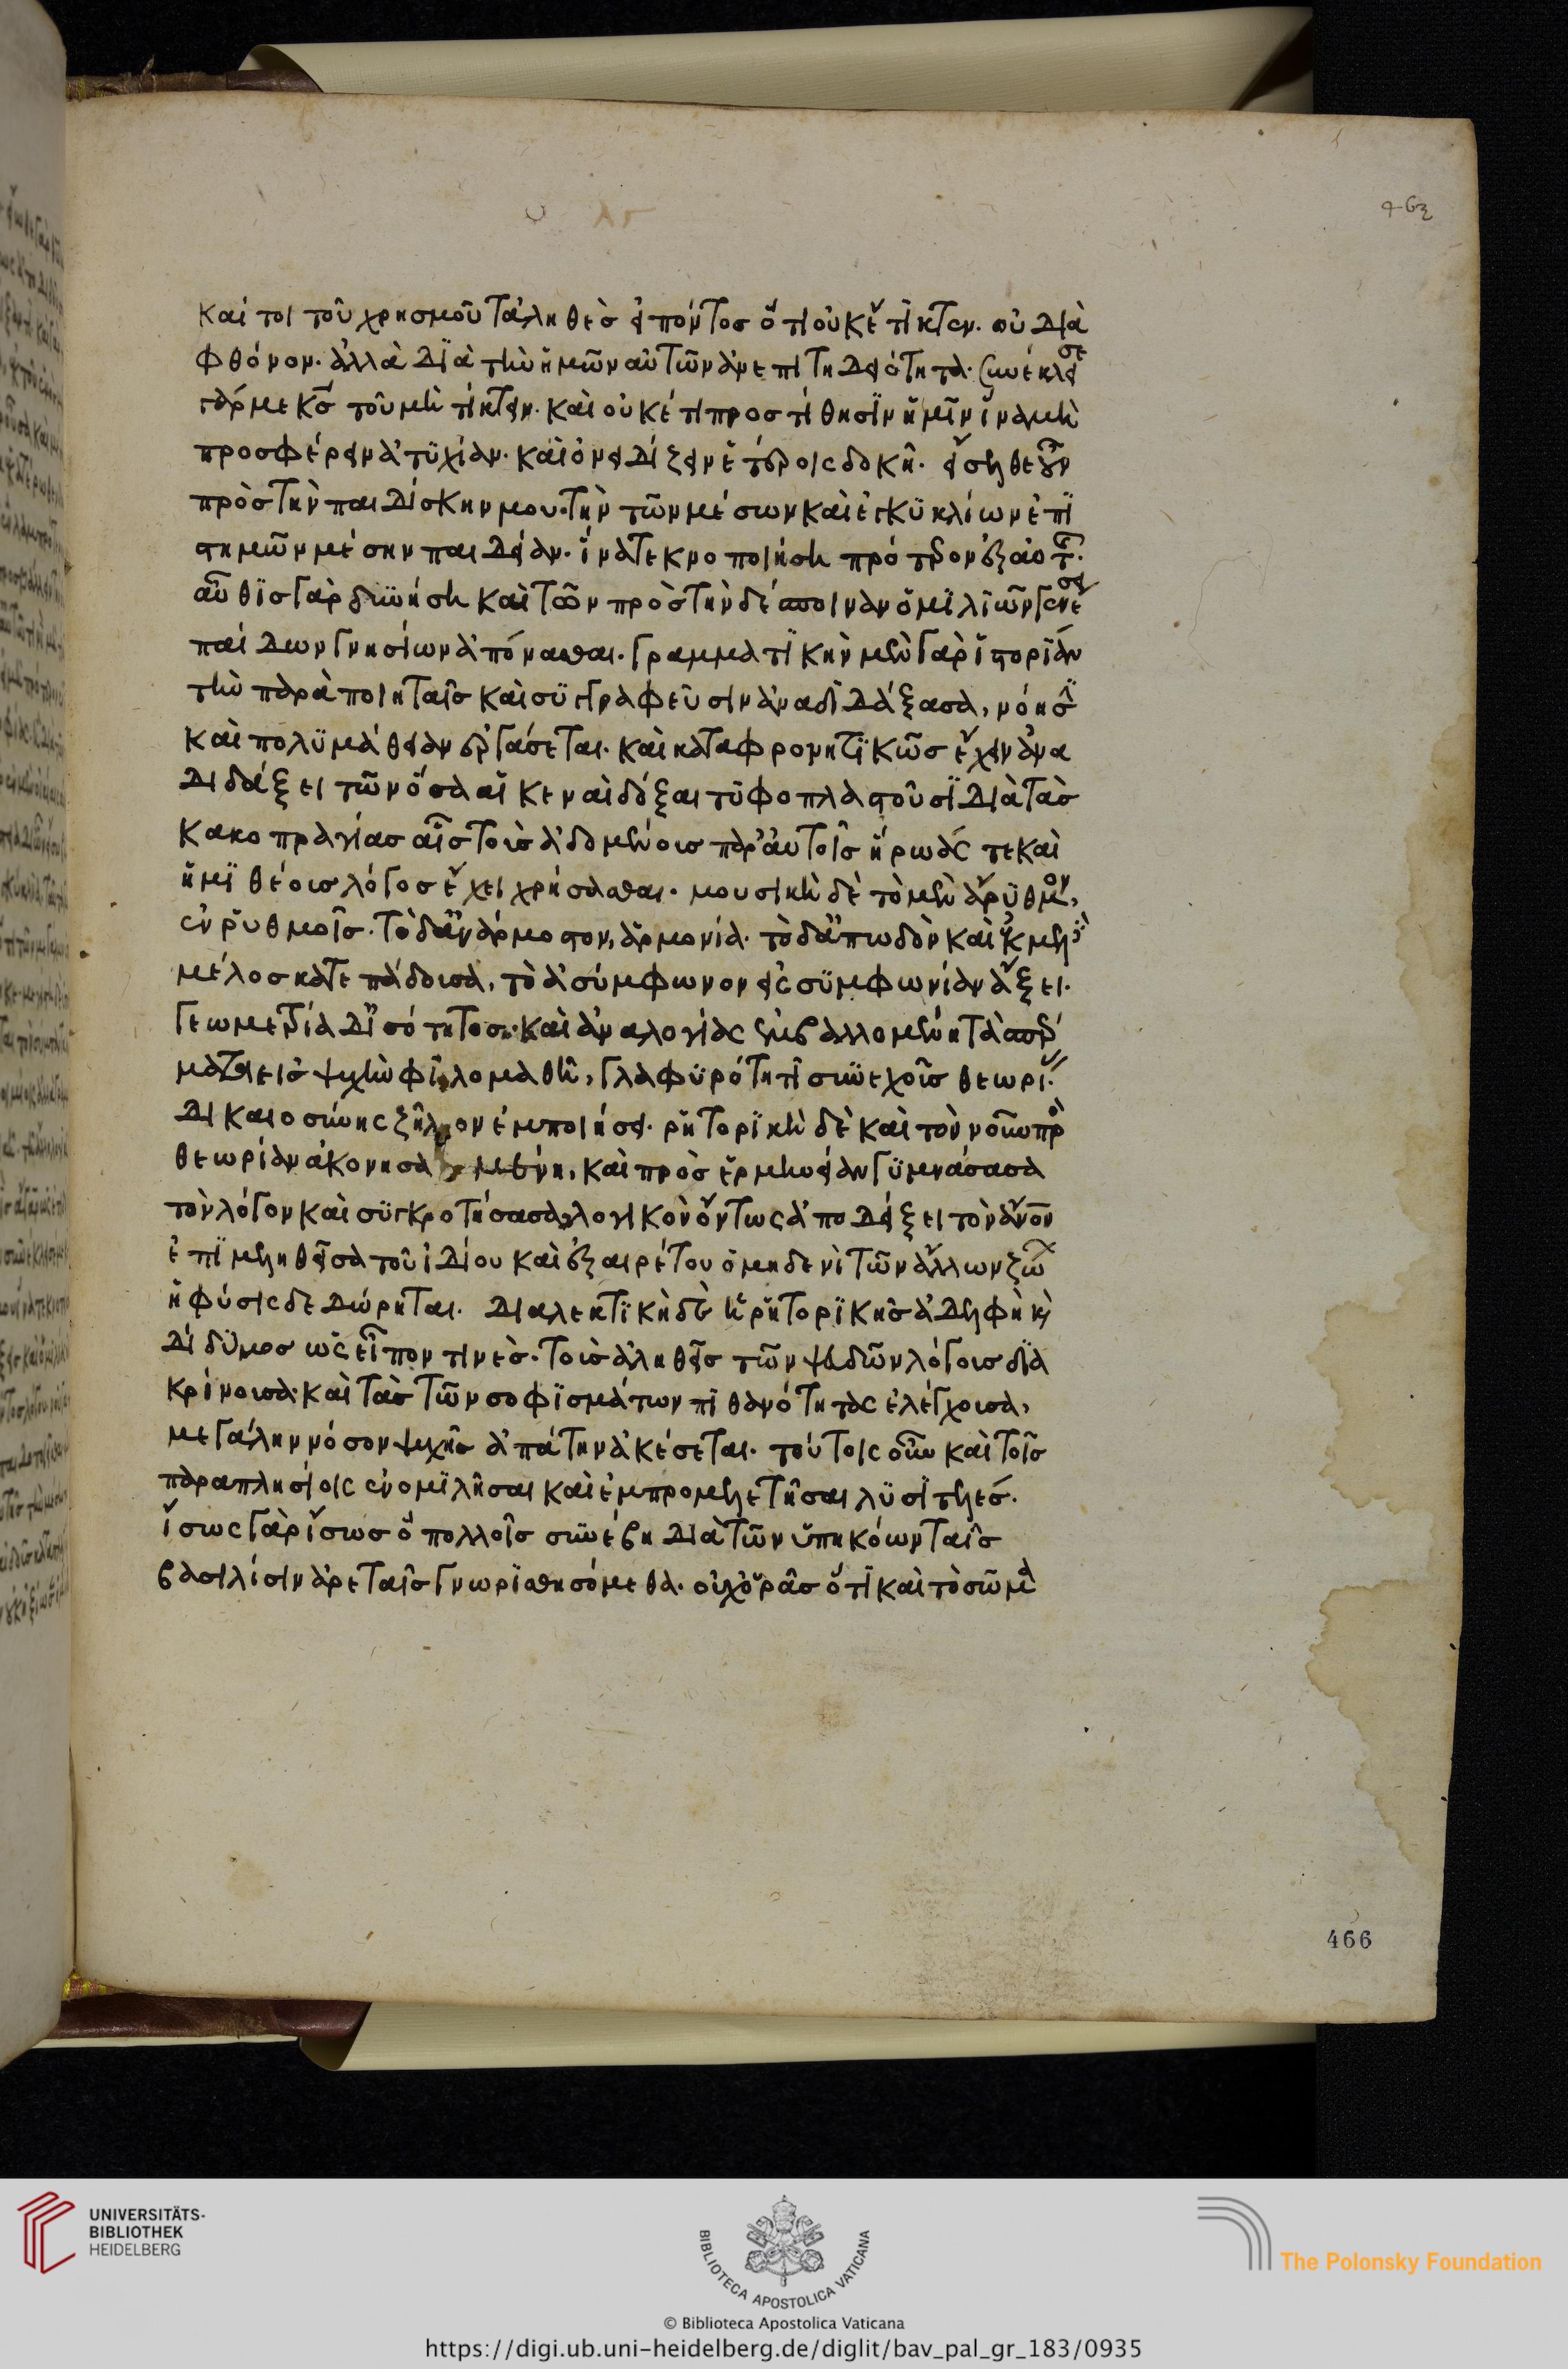 463
καί τοι τοῦ χρησμοῦ τἀληθὲς εἰπόντος ὅτι οὐκ ἔτικτεν. οὐ διὰ
φθόνον. ἀλλὰ διὰ τὴν ἡμῶν αὐτῶν ἀνεπιτηδειότητα. συνέκλεισε
γάρ με κς τοῦ μὴ τίκτειν. καὶ οὐκέτι προστίθησιν ἡμῖν ἵνα μὴ
προσφέρειν ἀτυχίαν. καὶ ὀνειδίζειν ἑτέροις δοκῇ. εἴσελθε οὖν
πρὸς τὴν παιδίσκην μου. τὴν τῶν μέσων καὶ ἐγκυκλίων ἐπι
στημῶν μέσην παιδείαν. ἵνα τεκνοποιήσῃ πρότερον ἐξ αὐτ.
αὖθις γὰρ δυνήσῃ καὶ τῶν πρὸς τὴν δέσποιναν ὁμιλιῶν γενέσει
παίδων γνησίων ἀπόνασθαι. γραμματικὴ μὲν γὰρ ἱστορίαν
τὴν παρὰ ποιηταῖς καὶ συγγραφεῦσιν ἀναδιδάξασα, νόησιν
καὶ πολυμάθειαν ἐργάσεται. καὶ καταφρονητικῶς ἔχειν ἀνα
διδάξει τῶν ὅσα αἱ κεναὶ δόξαι τυφοπλαστοῦσι διὰ τὰς
κακοπραγίας αἷς τοὺς ἀδομένους παρ' αὐτοῖς ἥρωάς τε καὶ
ἡμιθέους λόγος ἔχει χρήσασθαι. μουσικὴ δὲ τὸ μὲν ἄρυθμον,
ἐν ῥυθμοῖς. τὸ δ' ἀνάρμοστον, ἁρμονία. τὸ δ' ἀπωδὸν καὶ ἐκμελὲς
μέλος κατεπάδουσα, τὸ ἀσύμφωνον εἰς συμφωνίαν ἄξει.
γεωμετρία δ' ἰσότητος. καὶ ἀναλογίας ἐμβαλλομένη τὰ σπέρ
ματα εἰς ψυχὴν φιλομαθῆ, γλαφυρότητι συνεχοῦς θεωρίας
δικαιοσύνης ζῆλον ἐμποιήσει. ῥητορικὴ δὲ καὶ τὸν νοῦν πρὸ
θεωρίαν ἀκονησαμένη, καὶ πρὸς ἑρμηνείαν γυμνάσασα
τὸν λόγον καὶ συγκροτήσασα, λογικὸν ὄντως ἀποδείξει τὸν ἄνον
ἐπιμεληθεῖσα τοῦ ἰδίου καὶ ἐξαιρέτου ὃ μηδενὶ τῶν ἄλλων ζώων
ἡ φύσις δεδώρηται. διαλεκτικὴ δὲ ἡ ῥητορικῆς ἀδελφὴ κὶ
δίδυμος ὡς εἶπον τινὲς. τοὺς ἀληθεῖς τῶν ψευδῶν λόγους δια
κρίνουσα. καὶ τὰς τῶν σοφισμάτων πιθανότητας ἐλέγχουσα,
μεγάλην νόσον ψυχῆς ἀπάτην ἀκέσεται. τούτοις οὖν καὶ τοῖς
παραπλησίοις ἐνομιλῆσαι καὶ ἐμπρομελετῆσαι λυσιτελές.
ἴσως γὰρ ἴσως ὃ πολλοῖς συνέβη διὰ τῶν ὑπηκόων ταῖς
βασιλίσιν ἀρεταῖς γνωρισθησόμεθα. οὐχ ὁρᾶς ὅτι καὶ τὸ σῶμα
466
UNIVERSITÄTS-
BIBLIOTHEK
HEIDELBERG
BIBLIOTECA APOSTOLICA VATICANA
The Polonsky Foundation
© Biblioteca Apostolica Vaticana
https://digi.ub.uni-heidelberg.de/diglit/bav_pal_gr_183/0935